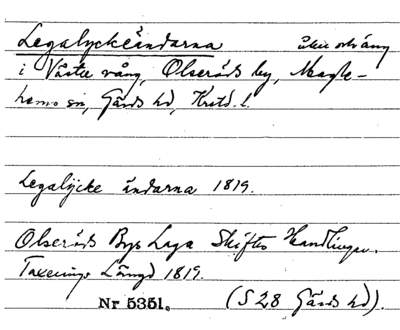 Legalyckeändarna åker och äng
i Västre vång, Olseröds by, Magle-
hems sn, Gärds hd, Krstd. l.
Legalÿcke ändarna 1819.
Olseröds Bys Laga Skiftes Handlingar.
Taxerings Längd 1819.
Nr 5351. (S 28 Gärds hd).